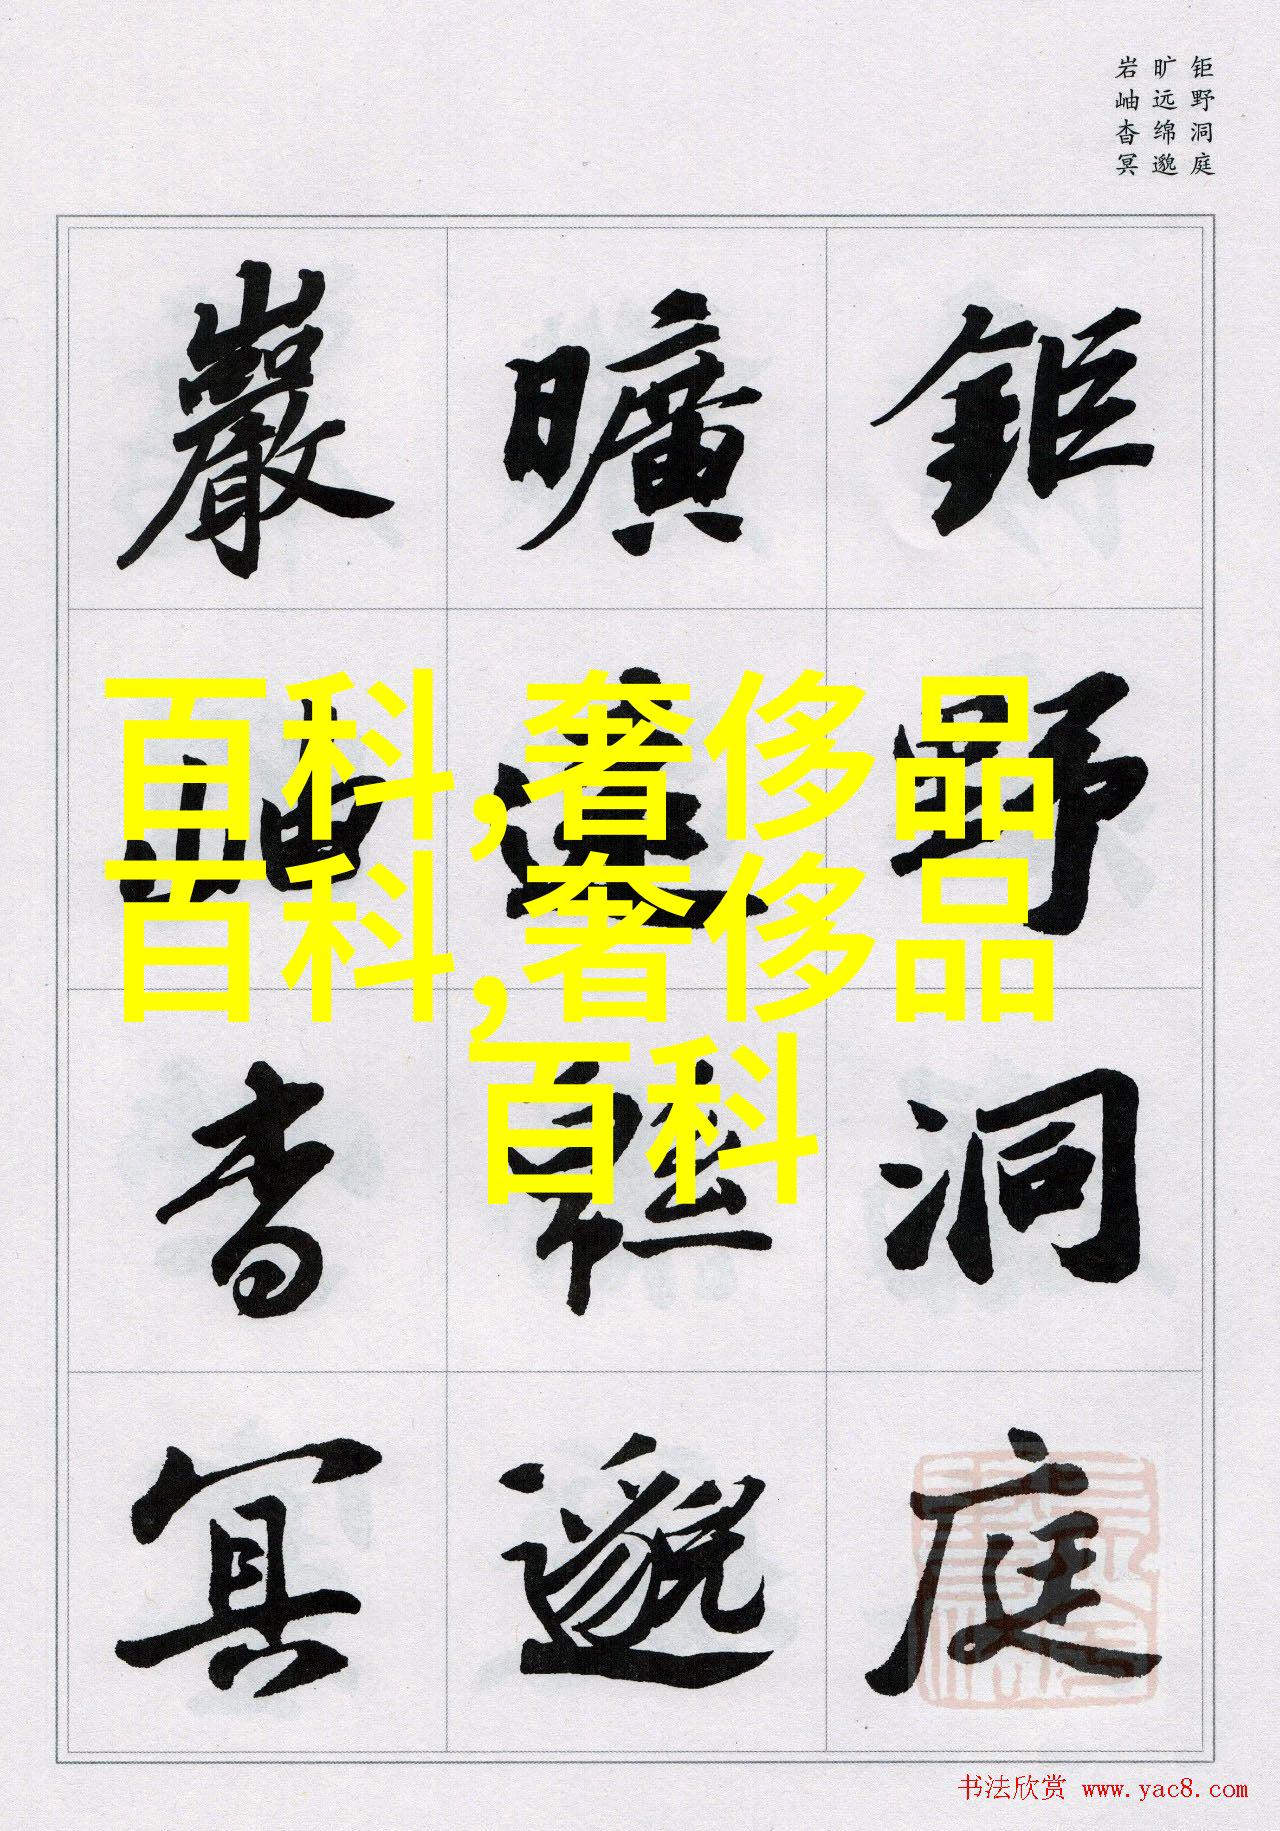 钜野洞庭
旷远绵邈
岩岫杳冥
鉅野洞庭
曠遠緜邈
巖岫杳冥
百科,奢侈品
百科,奢侈品
百科
书法欣赏 www.yac8.com